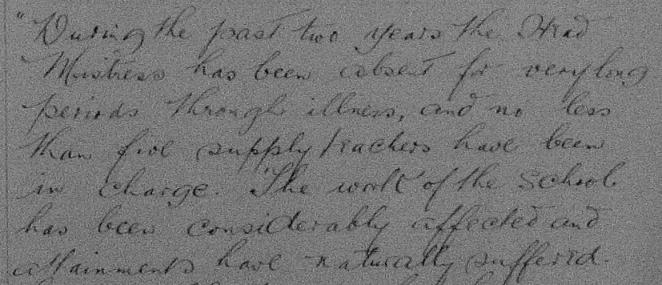 "During the past two years the Head
Mistress has been absent for very long
periods through illness, and no less
than five supply teachers have been
in charge. The work of the School
has been considerably affected and
attainments have naturally suffered.